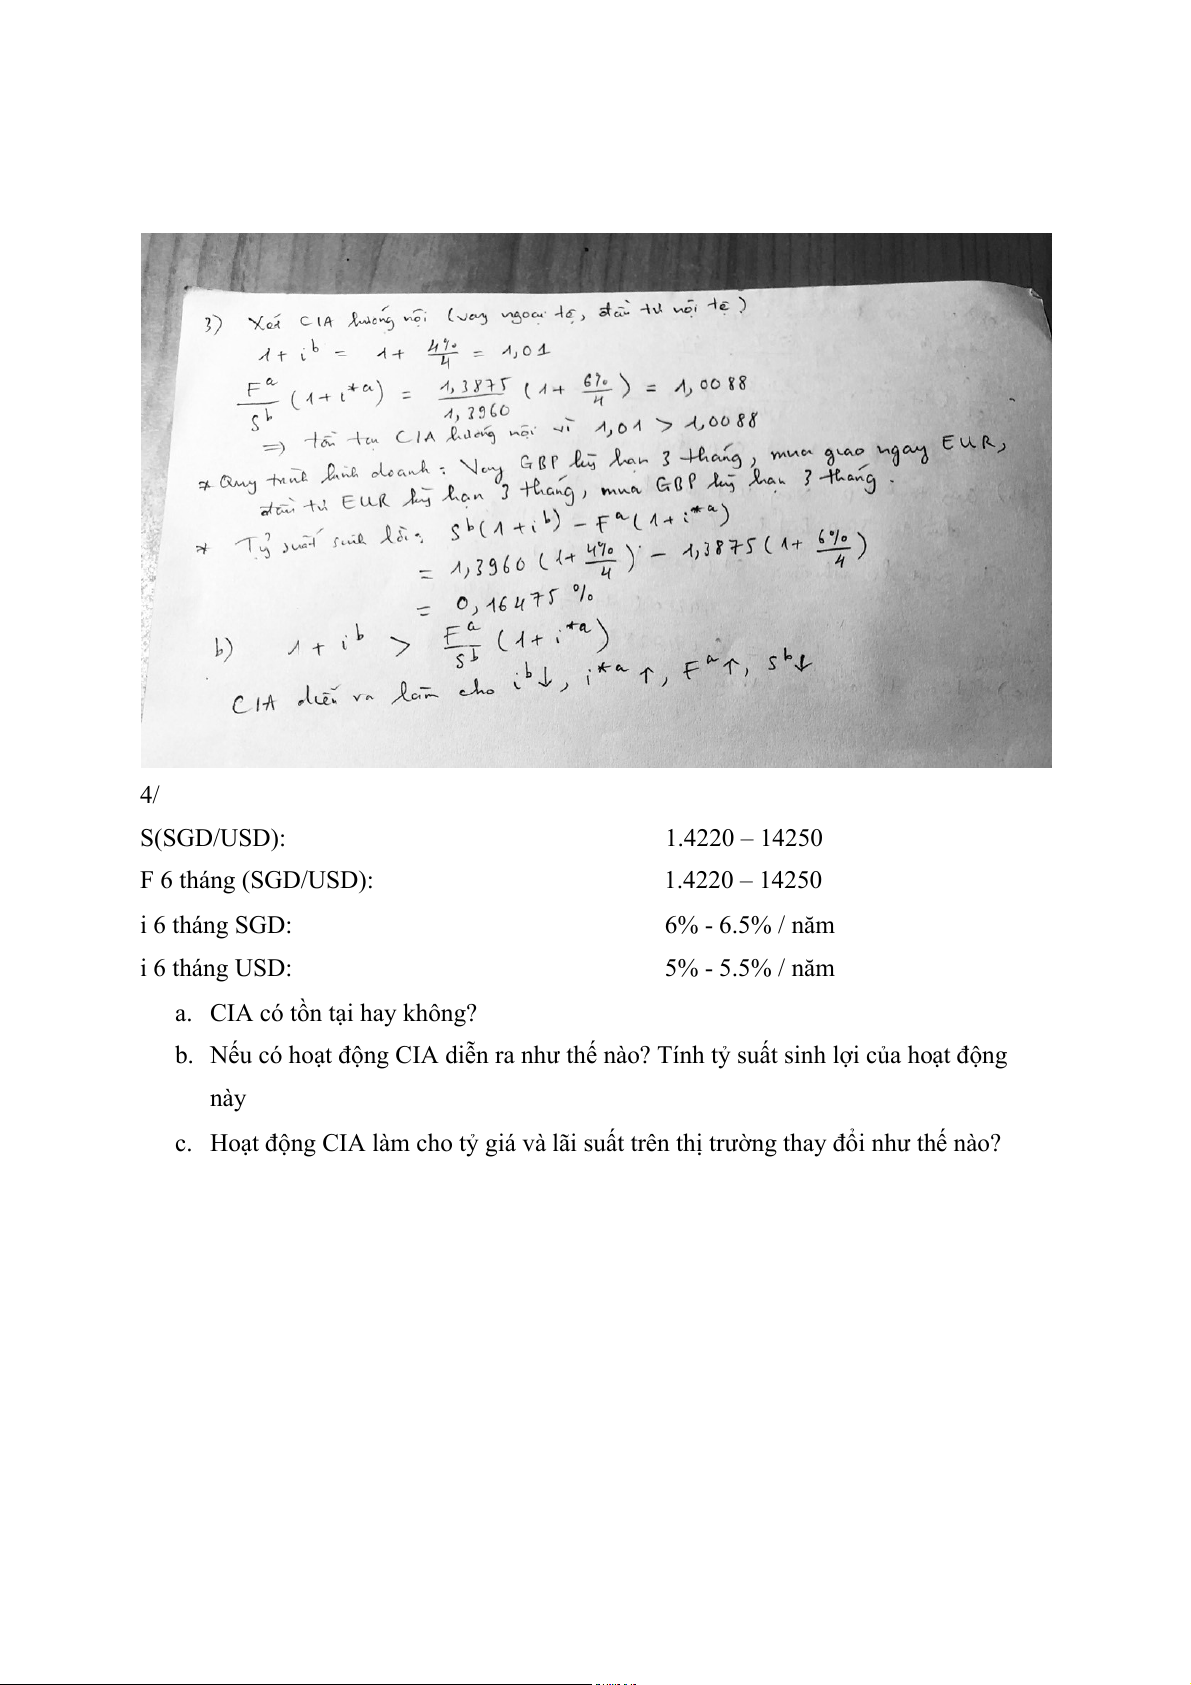 3) Xét CIA hướng nội (vay ngoại tệ, đầu tư nội tệ)
1 + i^b = 1 + 4%/4 = 1,01
F^a/S^b (1 + i*^a) = 1,3875/1,3960 (1 + 6%/4) = 1,0088
=> tồn tại CIA hướng nội vì 1,01 > 1,0088
* Quy trình kinh doanh: Vay GBP kỳ hạn 3 tháng, mua giao ngay EUR,
đầu tư EUR kỳ hạn 3 tháng, mua GBP kỳ hạn 3 tháng.
* Tỷ suất sinh lời: S^b(1 + i^b) – F^a(1 + i*^a)
= 1,3960 (1 + 4%/4) – 1,3875 (1 + 6%/4)
= 0,16475 %
b) 1 + i^b > F^a/S^b (1 + i*^a)
CIA diễn ra làm cho i^b↓, i*^a↑, F^a↑, S^b↓
4/
S(SGD/USD): 1.4220 – 14250
F 6 tháng (SGD/USD): 1.4220 – 14250
i 6 tháng SGD: 6% - 6.5% / năm
i 6 tháng USD: 5% - 5.5% / năm
a. CIA có tồn tại hay không?
b. Nếu có hoạt động CIA diễn ra như thế nào? Tính tỷ suất sinh lợi của hoạt động
này
c. Hoạt động CIA làm cho tỷ giá và lãi suất trên thị trường thay đổi như thế nào?